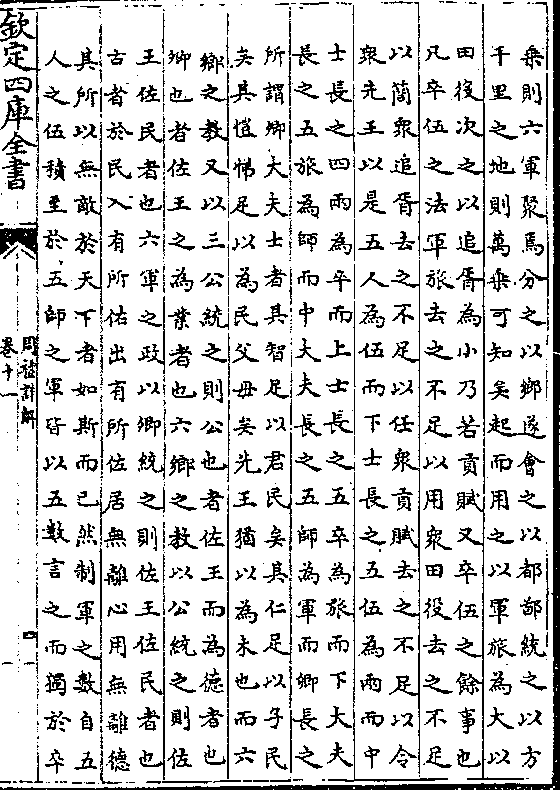 乗則六軍聚焉分之以鄉遂會之以都鄙統之以方
千里之地則萬乗可知矣起而用之以軍旅為大以
田役次之以追胥為小乃若貢賦又卒伍之餘事也
凡卒伍之法軍旅去之不足以用衆田役去之不足
以簡衆追胥去之不足以任衆貢賦去之不足以令
衆先王以是五人為伍而下士長之五伍為兩而中
士長之四兩為卒而上士長之五卒為旅而下大夫
長之五旅為師而中大夫長之五師為軍而卿長之
所謂卿大夫士者其智足以君民矣其仁足以子民
矣其愷悌足以為民父母矣先王猶以為未也而六
鄉之教又以三公統之則公也者佐王而為德者也
卿也者佐王之為業者也六鄉之教以公統之則佐
王佐民者也六軍之政以卿統之則佐王佐民者也
古者於民入有所佑出有所佐居無離心用無離德
其所以無敵於天下者如斯而已然制軍之數自五
人之伍積至於五師之軍皆以五數言之而獨於卒
欽定四庫全書
周禮詳解
卷十一
四